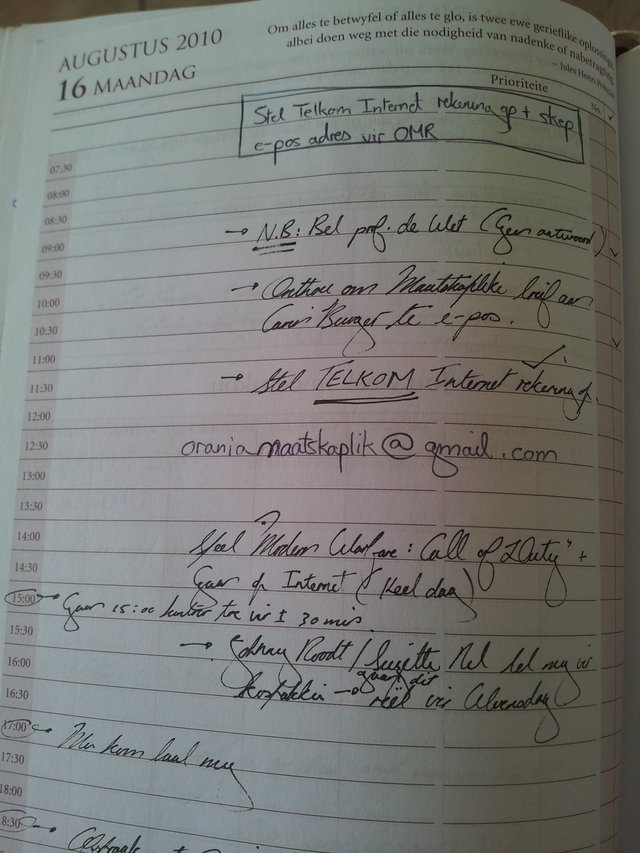 AUGUSTUS 2010
16 MAANDAG
Om alles te betwyfel of alles te glo, is twee ewe gerieflike oplossings
albei doen weg met die nodigheid van nadenke of nabetragting
– Jules Henri
Prioriteite
No. ✓
Stel Telkom Internet rekening op + skep
e-pos adres vir OMR
07:30
08:00
08:30
→ N.B: Bel prof. de Wet (Geen antwoord) ✓
09:00
09:30
→ Onthou om Maatskaplike brief aan
10:00
Burger te e-pos. ✓
10:30
11:00
→ Stel TELKOM Internet rekening op. ✓
11:30
12:00
12:30
oraniamaatskaplik@gmail.com
13:00
13:30
14:00
Speel "Modern Warfare: Call of Duty" +
14:30
Gaan op Internet (Heel dag)
15:00
Gaan 15:00 kantoor toe vir ± 30 min
15:30
→ Johnny Roodt / Suzette Nel bel my vir
16:00
kospakkie → gaan dit
reël vir Woensdag
16:30
17:00
Ma kom haal my
17:30
18:00
8:30